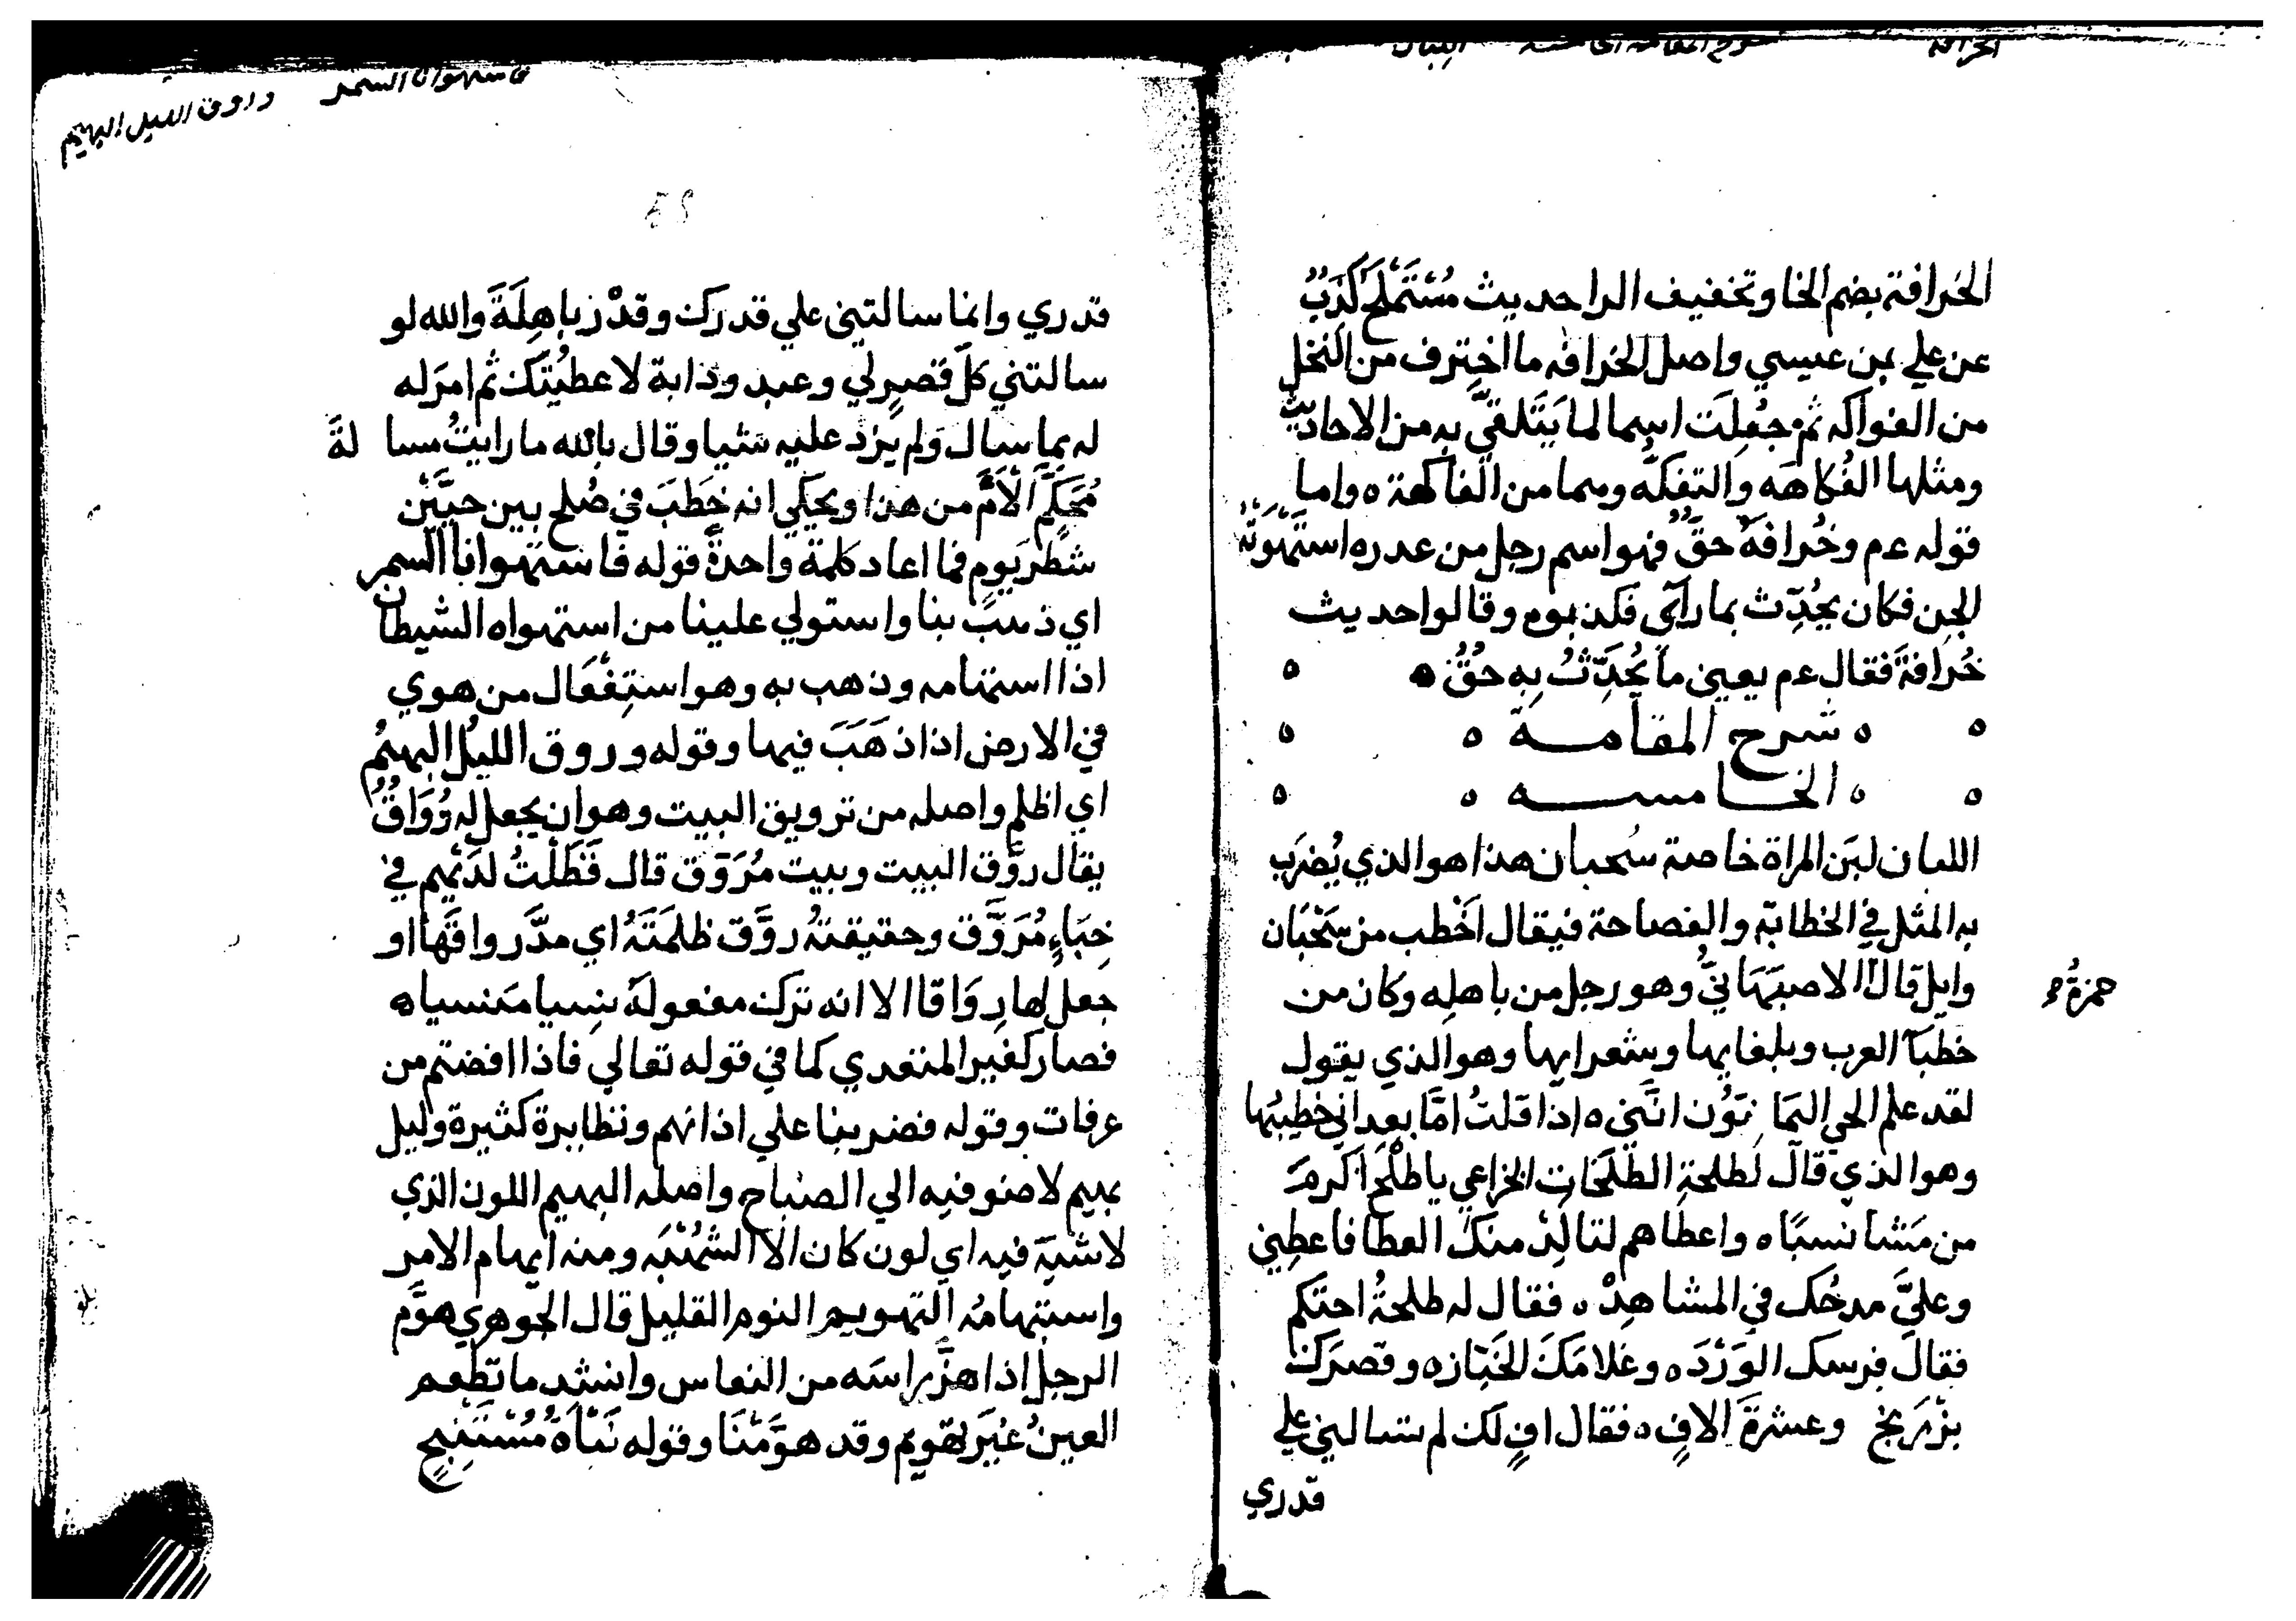 الخرافة شرح المقامة الخامسة اللبان
الخُرافة بضم الخا وتخفيف الرا حديث مُسْتَمْلَحٌ كَذِبٌ
عن علي بن عيسي واصل الخرافه ما اخترف من النخل
من الفواكه ثم جُعِلَت اسما لما يَتَلقّي به من الاحاديث
ومثلها الفُكاهَه والتفكّه وهما من الفاكهة ه واما
قوله عم وخُرافَةُ حقٌّ فهو اسم رجل من عدره استَهْوَتْه
الجن فكان يُحُدِّث بما رآى فكذبوه وقالوا حديث
خُرافَةَ فقال عم يعيني ما يُحَدِّثُ بِه حُقٌّ ه
ه شرح المقامة ه
ه الخامسه ه
اللبان لبَن المراة خاصة سُحبان هذا هو الذي يُضرَب
به المثل في الخطابة والفصاحة فيقال اخْطب من سَحْبَان
وايل قال الاصبَهَانيُّ وهو رجل من باهلِه وكان من
حمزةُ
خطبآ العرب وبلغايها وشعرايها وهو الذي يقول
لقد علم الحي اليما نوُن انَّني ه اذا قلتُ امّا بعد اني خطيبُها
وهو الذي قال لطلحةِ الطَّلَحَاتِ الخزاعي يا طَلْحَ اكرمَ
من مَشا نسبًا ه واعطاهم لتالِدْ منك العطا فاعطِني
وعليَّ مدحُك في المشاهِدْ ه فقال له طلحةُ احتكم
فقال فِرسك الوَرْدَ ه وغلامَكَ الخبّاز ه وقصرَكَ
بزْرَنج وعشرةَ الافٍ ه فقال افٍ لك لم تسالني علي
قدري
فاستهوانا السمر وروق الليل البهيم
قدري وانما سالتني علي قدرك وقدْر باهِلَةَ والله لو
سالتني كلَّ قصرٍ لي وعبد ودابة لاعطيْتُك ثم امرَ له
له بما سال ولم يزد عليه شيا وقال بالله ما رايتُ مسالةَ
مُحَكَّمٍ الأَمَ من هذا ويحكي انه خَطَبَ في صُلح بين حيَّيْن
شطر يومٍ فما اعاد كلمةً واحدةً قوله فاستهوانا السمر
اي ذهبَ بنا واستولي علينا من استهواه الشيطان
اذا استهامه وذهب به وهو استِفْعَال من هوي
في الارض اذا ذهَبَ فيها وقوله وروق الليلُ البهيمُ
اي اظلم واصله من ترويق البيت وهو ان يجعل له رُوَاقٌ
يقال روَّق البيت وبيت مُرَوَّق قال فَظَلْتُ لديهم في
خِبَاءٍ مُرَوَّق وحقيقتهُ روَّق ظلمَتَهُ اي مدَّ رواقَها او
جعل لها رِوَاقا الا انه ترك مفعولهُ نِسيا مَنسيا ه
فصار كغير المتعدي كما في قوله تعالي فاذا افضتم من
عرفات وقوله فضربنا علي اذانهم ونظايره كثيرة وليل
بهيم لا ضو فيه الي الصباح واصله البهيم اللون الذي
لا شية فيه اي لون كان الا الشُهْبَه ومنه ابهام الامر
واستبهامُه التهويم النوم القليل قال الجوهري هوَّم
الرجل اذا هزّ راسَه من النعاس وانشد ما تطعم
العينُ غيَر تهويم وقد هوَّمْنَا وقوله نَبْأَةُ مُسْتَنْبِحٍ